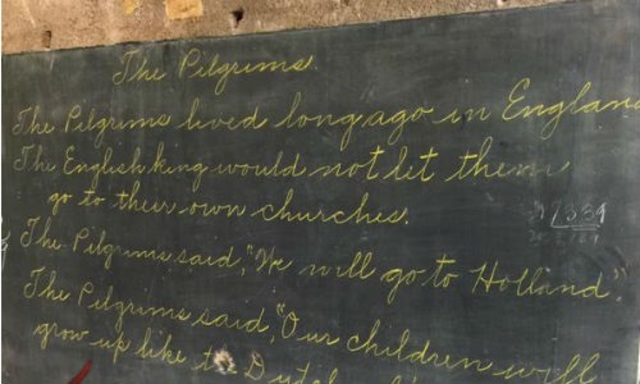 The Pilgrims.
The Pilgrims lived long ago in Englan
The English king would not let them
go to their own churches.
The Pilgrims said, "We will go to Holland."
The Pilgrims said, "Our children will
grow up like the Dutch